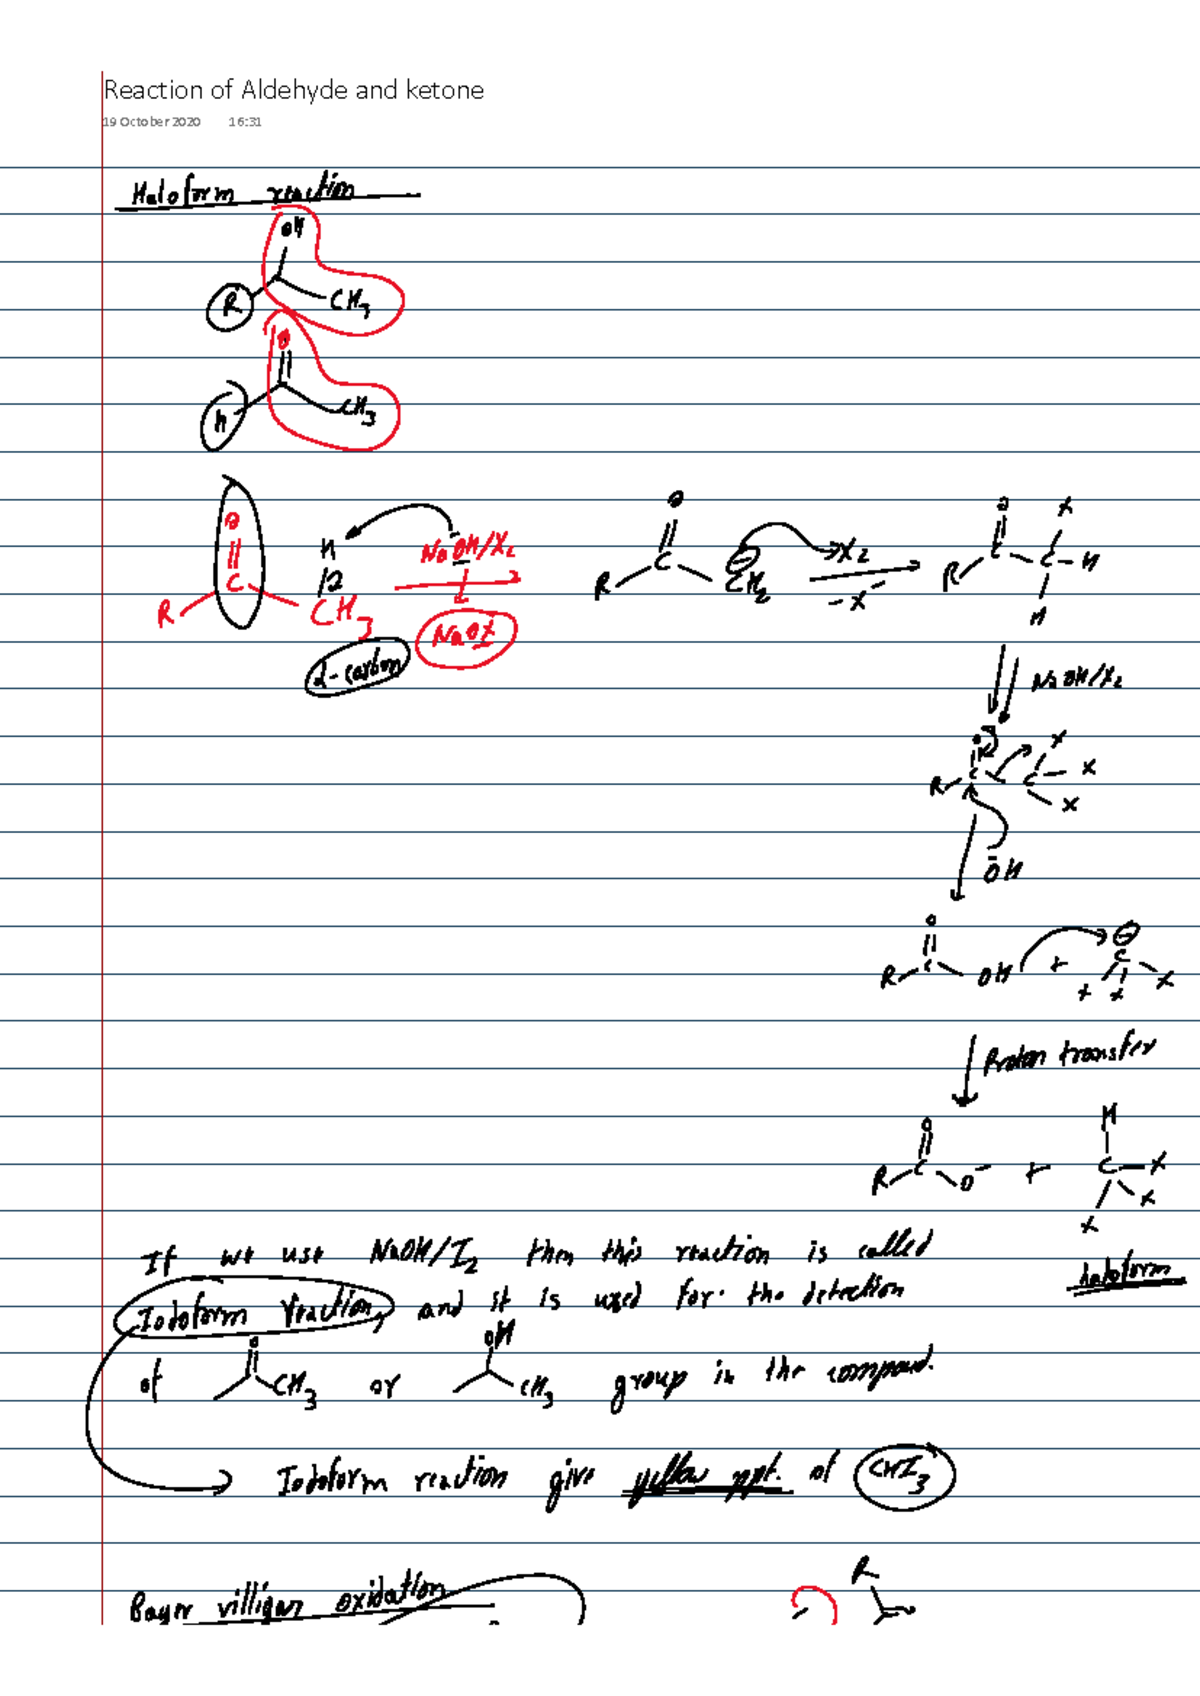 Reaction of Aldehyde and ketone
19 October 2020 16:31
Haloform reaction
OH
R CH3
O
h CH3
O
C
R
H
α
CH3
α-carbon
NaOH/X2
NaOX
O
C
R CH2
⊖
X2
-X⁻
O X
R C C H
H
NaOH/X2
O X
R C C X
X
ŌH
O
R C OH + ⊖ C X X X
Proton transfer
O
R C O⁻ + H C X X X
haloform
If we use NaOH/I2 then this reaction is called
Iodoform reaction, and it is used for the detection
of O CH3 or OH CH3 group in the compound.
Iodoform reaction give yellow ppt. of CHI3
Bayer villigar oxidation
R